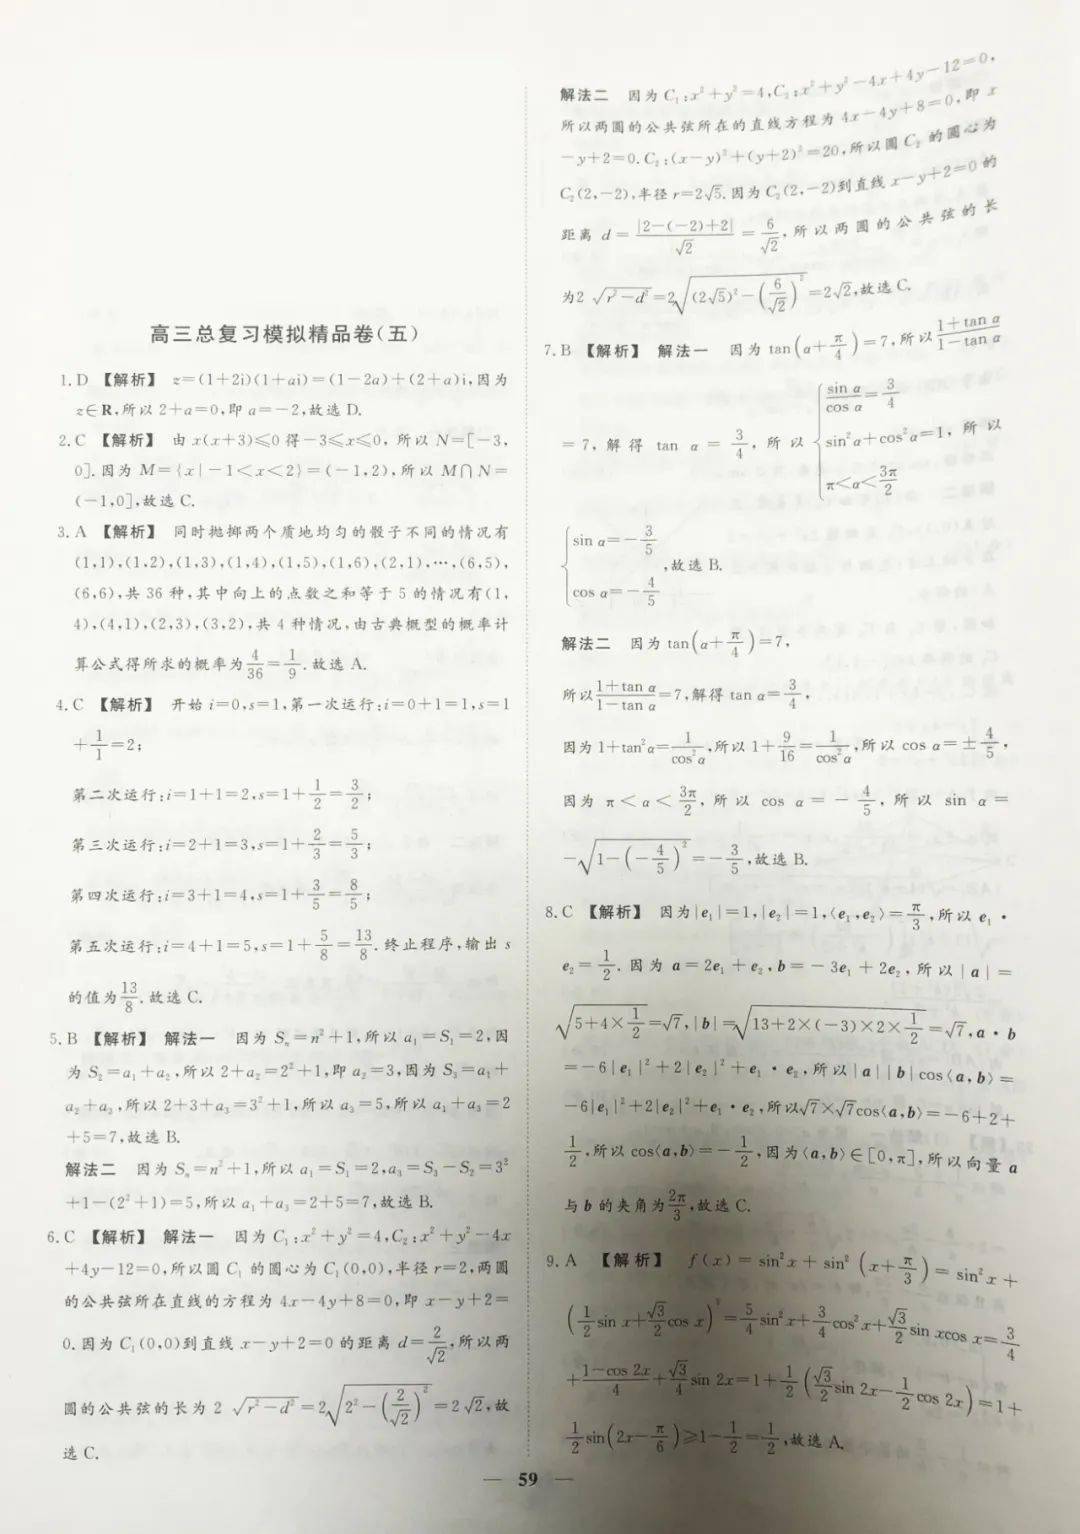 高三总复习模拟精品卷(五)
1. D 【解析】 z=(1+2i)(1+ai)=(1-2a)+(2+a)i,因为
z∈R,所以2+a=0,即a=-2,故选D.
2. C 【解析】 由x(x+3)≤0得-3≤x≤0,所以N=[-3,
0].因为M={x|-1<x<2}=(-1,2),所以M∩N=
(-1,0],故选C.
3. A 【解析】 同时抛掷两个质地均匀的骰子不同的情况有
(1,1),(1,2),(1,3),(1,4),(1,5),(1,6),(2,1),…,(6,5),
(6,6),共36种,其中向上的点数之和等于5的情况有(1,
4),(4,1),(2,3),(3,2),共4种情况,由古典概型的概率计
算公式得所求的概率为4/36=1/9.故选A.
4. C 【解析】 开始i=0,s=1,第一次运行:i=0+1=1,s=1
+1/1=2;
第二次运行:i=1+1=2,s=1+1/2=3/2;
第三次运行:i=2+1=3,s=1+2/3=5/3;
第四次运行:i=3+1=4,s=1+3/5=8/5;
第五次运行:i=4+1=5,s=1+5/8=13/8.终止程序,输出s
的值为13/8.故选C.
5. B 【解析】 解法一 因为Sₙ=n²+1,所以a₁=S₁=2,因
为S₂=a₁+a₂,所以2+a₂=2²+1,即a₂=3,因为S₃=a₁+
a₂+a₃,所以2+3+a₃=3²+1,所以a₃=5,所以a₁+a₃=2
+5=7,故选B.
解法二 因为Sₙ=n²+1,所以a₁=S₁=2,a₃=S₃-S₂=3²
+1-(2²+1)=5,所以a₁+a₃=2+5=7,故选B.
6. C 【解析】 解法一 因为C₁:x²+y²=4,C₂:x²+y²-4x
+4y-12=0,所以圆C₁的圆心为C₁(0,0),半径r=2,两圆
的公共弦所在直线的方程为4x-4y+8=0,即x-y+2=
0.因为C₁(0,0)到直线x-y+2=0的距离d=2/√2,所以两
圆的公共弦的长为2√(r²-d²)=2√(2²-(2/√2)²)=2√2,故
选C.
解法二 因为C₁:x²+y²=4,C₂:x²+y²-4x+4y-12=0,
所以两圆的公共弦所在的直线方程为4x-4y+8=0,即x
-y+2=0.C₂:(x-y)²+(y+2)²=20,所以圆C₂的圆心为
C₂(2,-2),半径r=2√5.因为C₂(2,-2)到直线x-y+2=0的
距离d=|2-(-2)+2|/√2=6/√2,所以两圆的公共弦的长
为2√(r²-d²)=2√((2√5)²-(6/√2)²)=2√2,故选C.
7. B 【解析】 解法一 因为tan(α+π/4)=7,所以(1+tan α)/(1-tan α)
=7,解得tan α=3/4,所以{sin α/cos α=3/4 sin²α+cos²α=1, π<α<3π/2 所以
{sin α=-3/5 cos α=-4/5,故选B.
解法二 因为tan(α+π/4)=7,
所以(1+tan α)/(1-tan α)=7,解得tan α=3/4,
因为1+tan²α=1/cos²α,所以1+9/16=1/cos²α,所以cos α=±4/5,
因为π<α<3π/2,所以cos α=-4/5,所以sin α=
-√(1-(-4/5)²)=-3/5,故选B.
8. C 【解析】 因为|e₁|=1,|e₂|=1,⟨e₁,e₂⟩=π/3,所以e₁·
e₂=1/2.因为a=2e₁+e₂,b=-3e₁+2e₂,所以|a|=
√(5+4×1/2)=√7,|b|=√(13+2×(-3)×2×1/2)=√7,a·b
=-6|e₁|²+2|e₂|²+e₁·e₂,所以|a||b|cos⟨a,b⟩=
-6|e₁|²+2|e₂|²+e₁·e₂,所以√7×√7cos⟨a,b⟩=-6+2+
1/2,所以cos⟨a,b⟩=-1/2,因为⟨a,b⟩∈[0,π],所以向量a
与b的夹角为2π/3,故选C.
9. A 【解析】 f(x)=sin²x+sin²(x+π/3)=sin²x+
(1/2sin x+√3/2cos x)²=5/4sin²x+3/4cos²x+√3/2sin xcos x=3/4
+(1-cos 2x)/4+√3/4sin 2x=1+1/2(√3/2sin 2x-1/2cos 2x)=1+
1/2sin(2x-π/6)≥1-1/2=1/2,故选A.
— 59 —